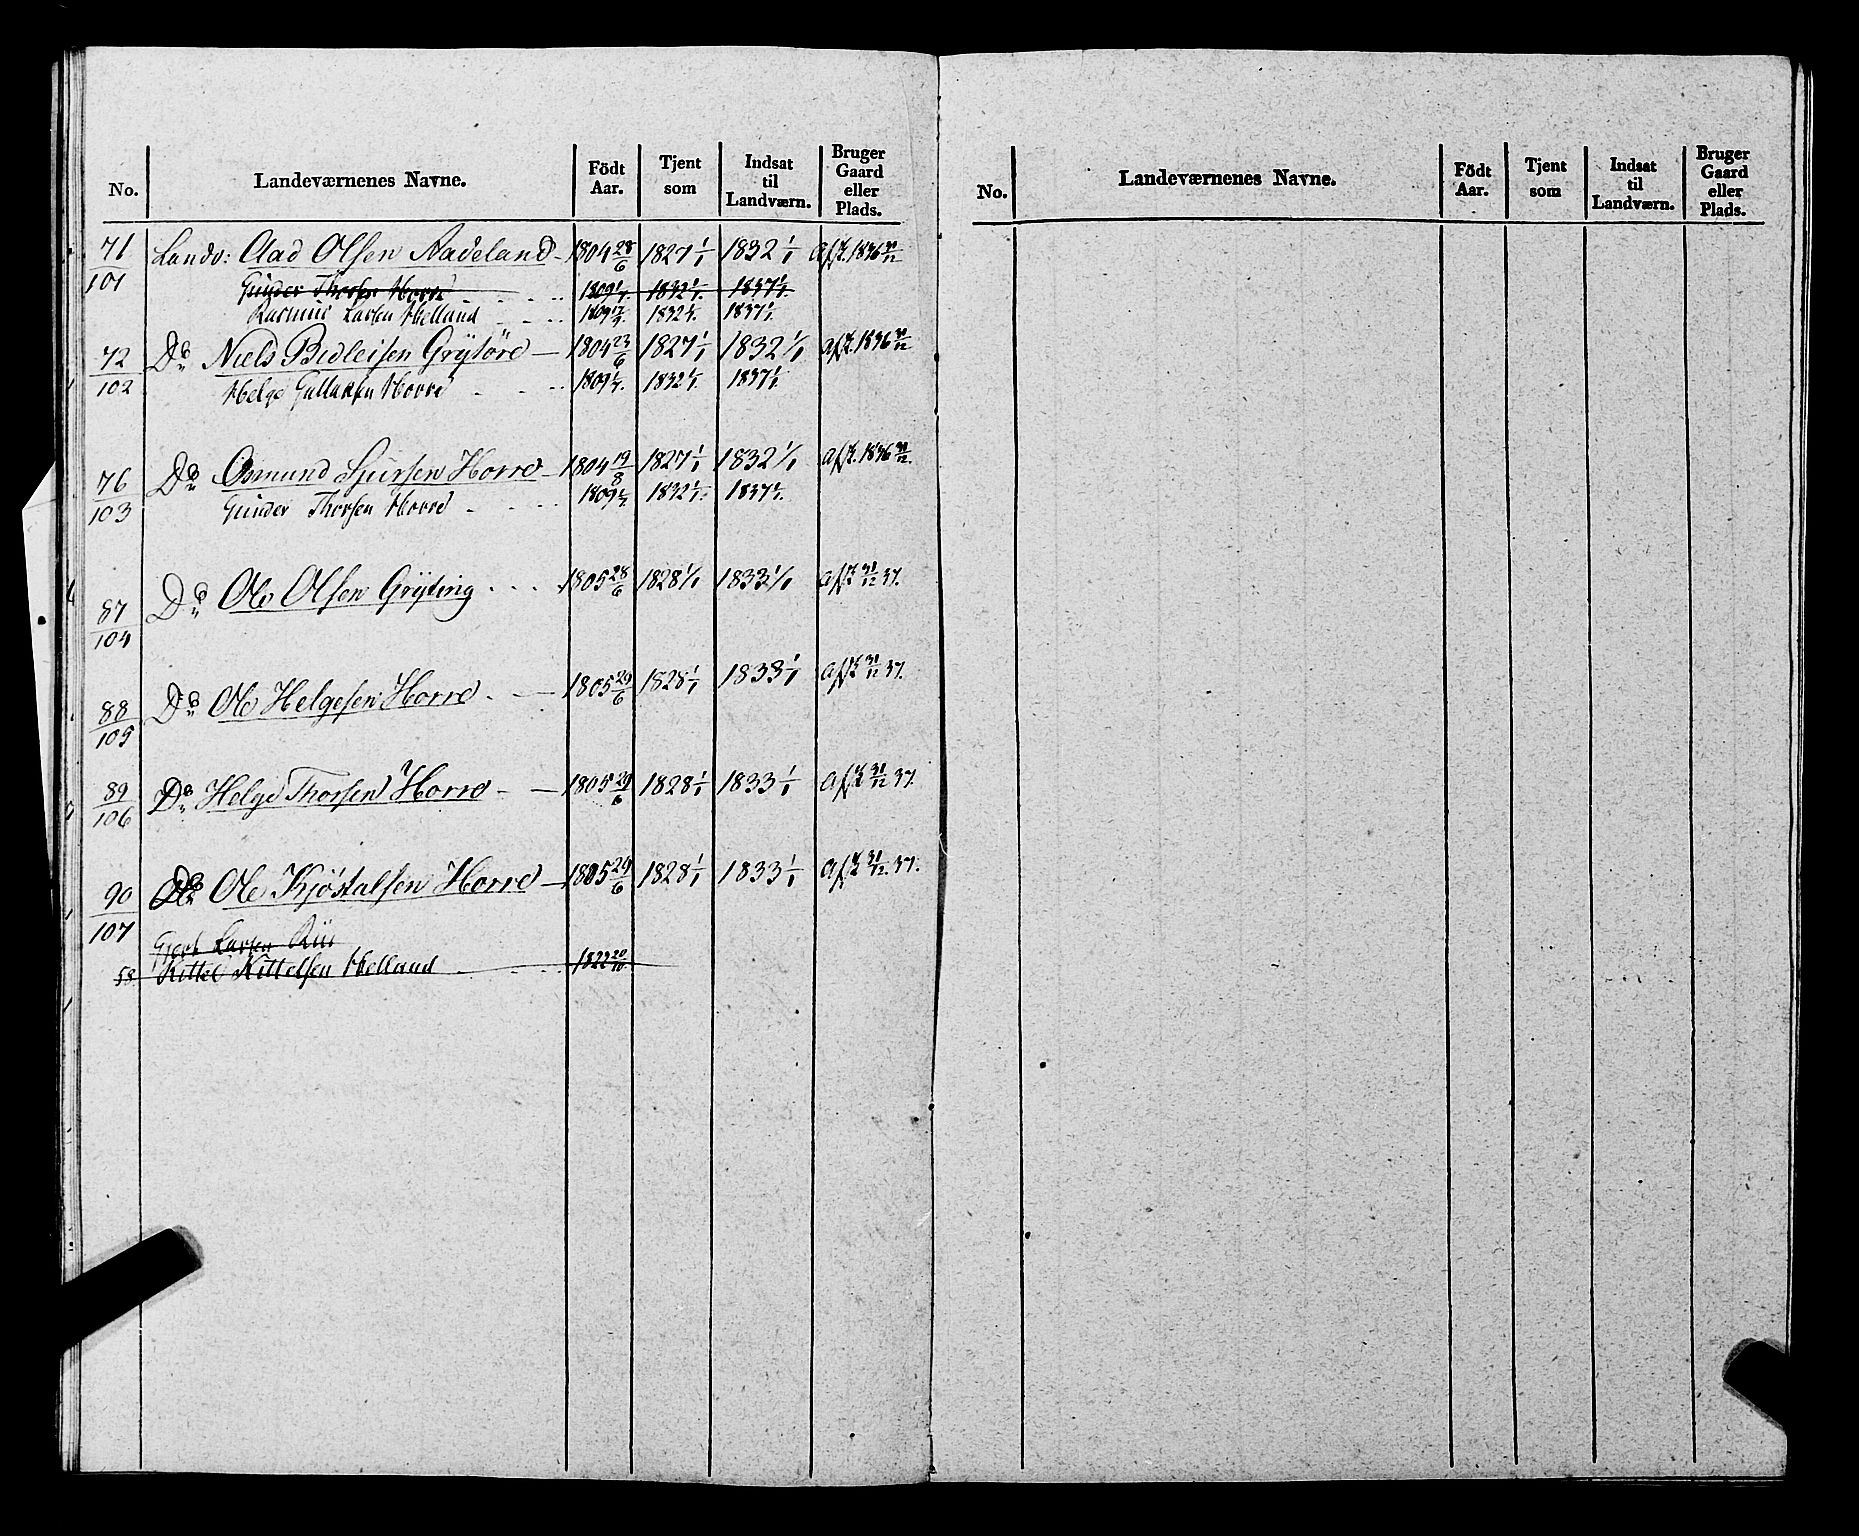 No. Landeværnenes Navne. Födt Aar. Tjent som Indsat til Landværn. Bruger Gaard eller Plads.
71 Landv: Aad Olsen Aadeland - 1804 28/6 1827 1/1 1832 1/1 afsk. 1836 31/12
101 Gunder Thorsen Horre 1809 1/7. 1832 1/1. 1837 1/1.
Rasmus Larsen Helland 1809 17/7. 1832 1/1. 1837 1/1.
72 Do Niels Bidleisen Grytöre - 1804 23/6 1827 1/1 1832 1/1 afsk. 1836 31/12
102 Helge Gullaksen Horre 1809 1/7. 1832 1/1. 1837 1/1.
76 Do Osmund Sjursen Horre - 1804 19/8 1827 1/1 1832 1/1 afsk. 1836 31/12.
103 Gunder Thorsen Horre 1809 1/7. 1832 1/1. 1837 1/1.
87 Do Ole Olsen Gryting 1805 28/6 1828 1/1 1833 1/1 afsk 31/12 37.
104
88 Do Ole Helgesen Horre 1805 29/6 1828 1/1 1833 1/1 afsk 31/12 37.
105
89 Do Helge Thorsen Horre 1805 29/6 1828 1/1 1833 1/1 afsk 31/12 37.
106
90 Do Ole Kjöstalsen Horre - 1805 29/6 1828 1/1 1833 1/1 afsk 31/12. 37.
107
Larsen
58 Kittel Kittelsen Helland 1822 20/10.
No. Landeværnenes Navne. Födt Aar. Tjent som Indsat til Landværn. Bruger Gaard eller Plads.